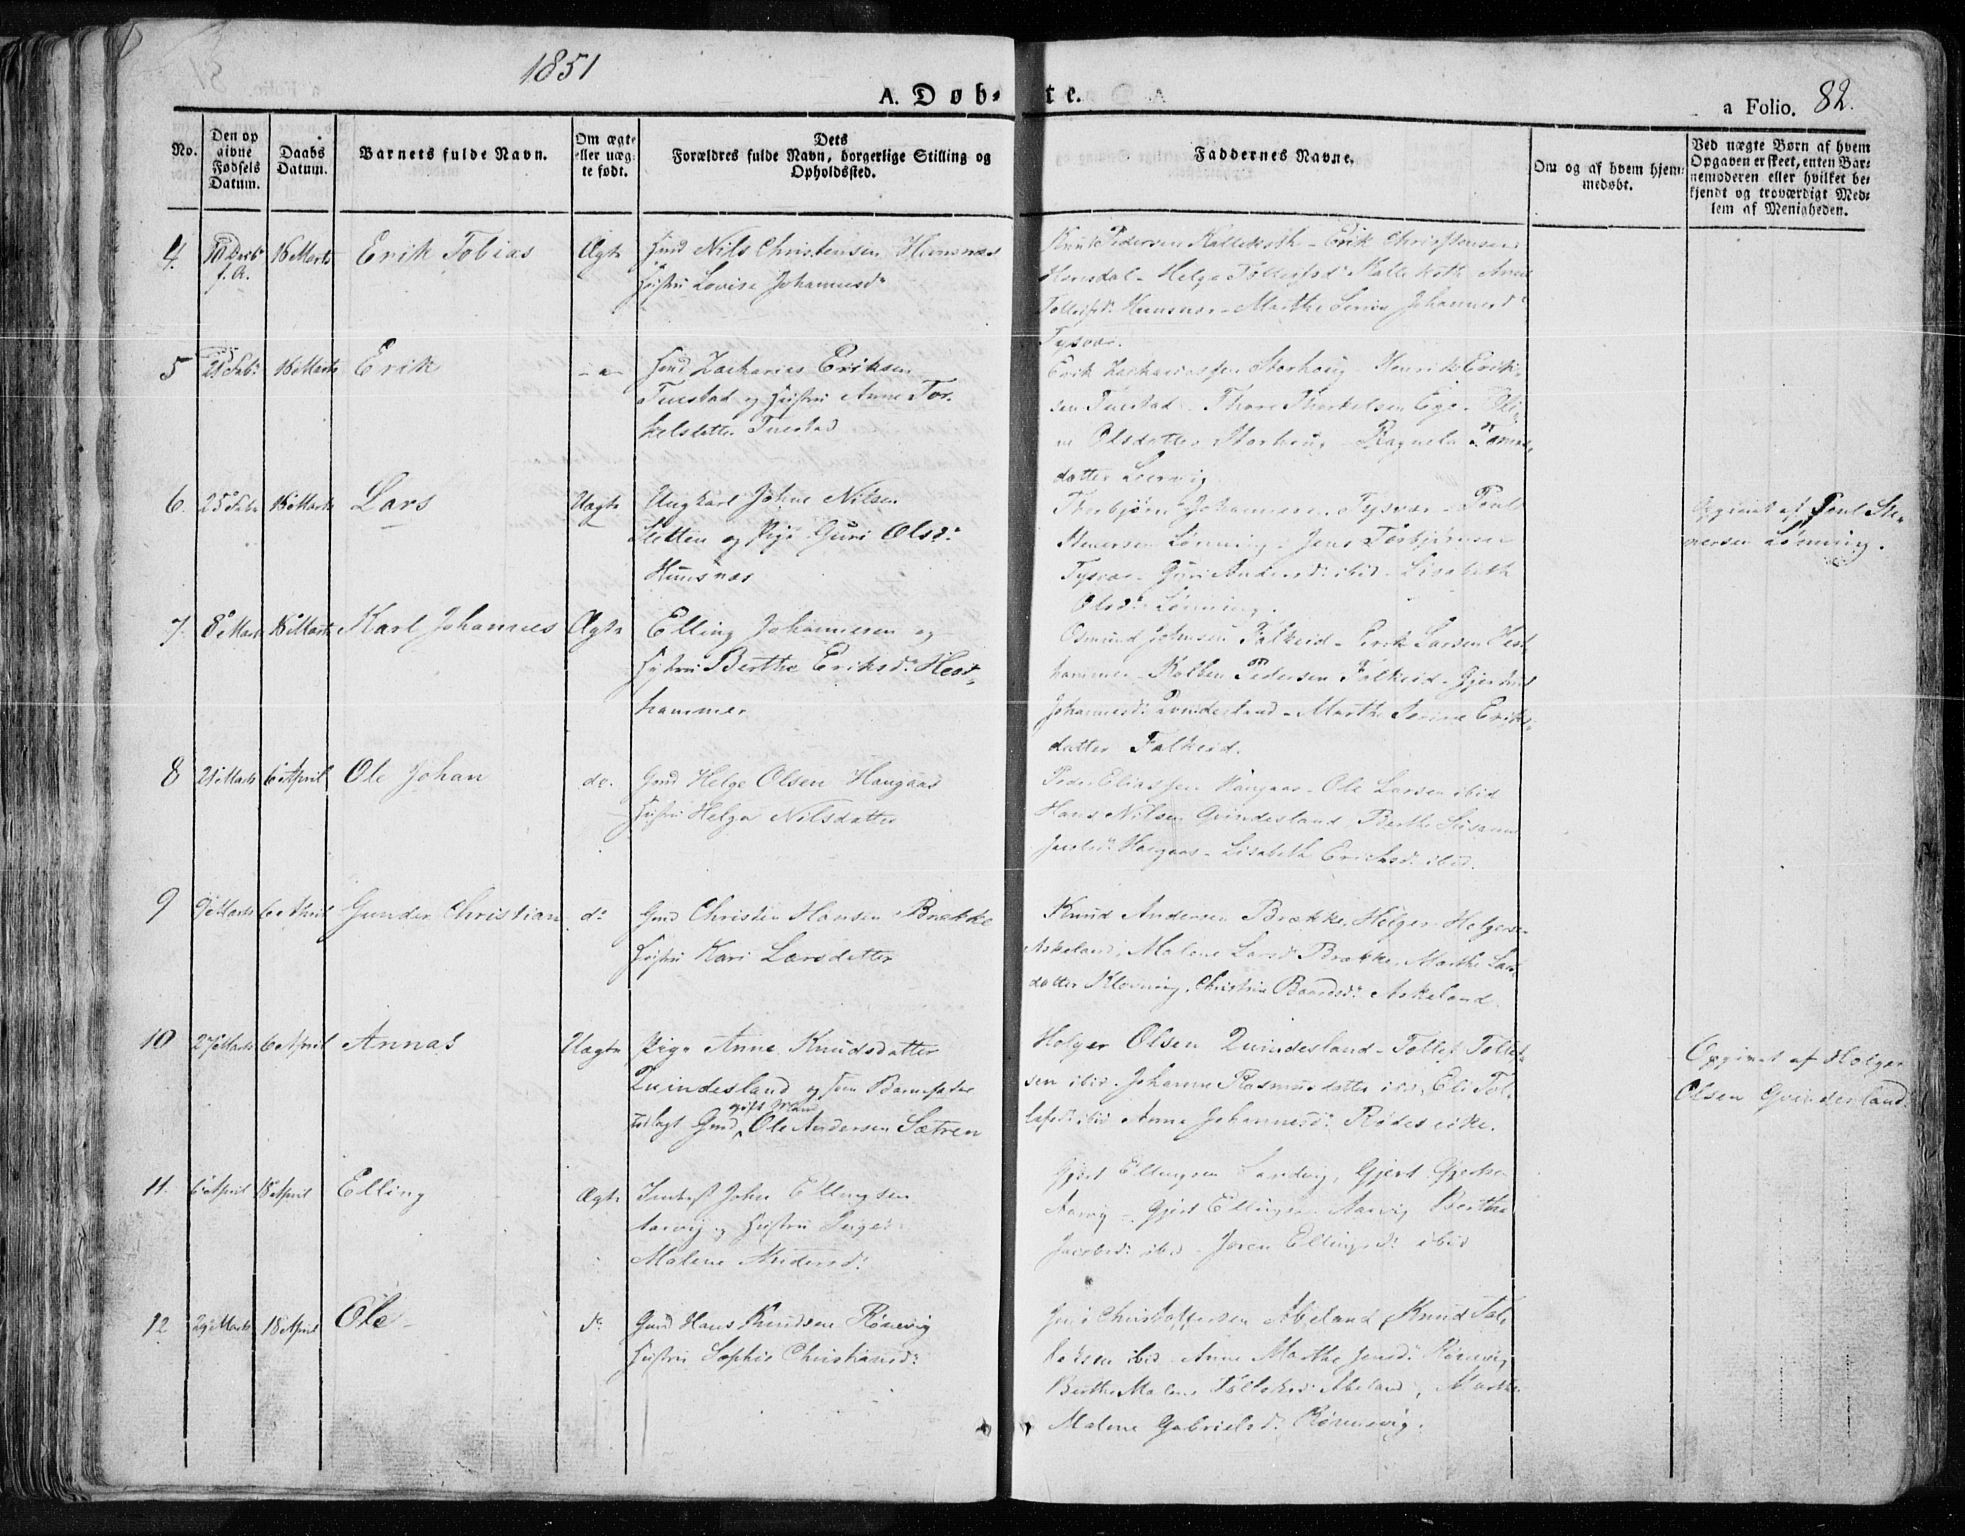 1851
A. Døb- te.
a Folio. 82.
No.
Den op
givne
Fødsels
Datum.
Daabs
Datum.
Barnets fulde Navn.
Om ægte
eller uæg-
te født.
Dets
Forældres fulde Navn, borgerlige Stilling og
Opholdssted.
Faddernes Navne.
Om og af hvem hjem-
medøbt.
Ved uægte Børn af hvem
Opgaven er skeet, enten Bar-
nemoderen eller hvilket be-
kjendt og troværdigt Med-
lem af Menigheden.
4. 16 Marts Erik Tobias Ægte Gmd Nils Christensen
f. A. Hustru Lovise Johannesd:
Pedersen - Erik Christensen
Helga
Marthe Johannesd:
Tysvær.
5 16 Marts Erik Gmd Zacharias Eriksen
Tuestad og Hustru Anne Tor-
kelsdatter Tuestad
Erik Zachariassen Storhoug - Henrik Erik-
sen Tuestad - Thore Thorkelsen
Olsdatter Storhoug - Ragnela
datter
6. 25 Febr 16 Marts Lars Uægte Ungkarl Johne Nilsen
Sletten og Pige Guri Olsd:
Torbjørn Johannesen Tysvær - Poul
Stenersen Lønning - Jens Torbjørnsen
Tysvær - Guri Andersd: ibid - Lisabeth
Olsd: Lønning.
Opgivet af Poul Ste-
nersen Lønning.
7. 8 Marts 16 Marts Karl Johannes Ægte Elling Johannesen og
Hustru Berthe Eriksd: Hest-
hammer
Osmund Johnsen Falkeid - Erik Larsen Hest
hammer - Kolben Pedersen Falkeid -
Johannesd: Qvindesland - Marthe Serine Eriks-
datter Falkeid.
8 21 Marts 6 April Ole Johan do. Gmd Helge Olsen Haugaas
Hustru Helga Nilsdatter
Peder Eliassen Haugaas - Ole Larsen ibid
Hans Nilsen Qvindesland, Berthe Susanne
Jacobsd: Haugaas - Lisabeth Ericksd: ibid.
9 9 Marts 6 April Gunder Christian do Gmd Christen Hansen Brække
Hustru Kari Larsdatter
Knud Andersen Brække, Helger Helgesen
Askeland, Malene Larsd: Brække, Marthe Lars
datter Klovning, Christine Baardsd: Askeland.
10 27 Marts 6 April Annas Uægte Pige Anne Knudsdatter
Quindesland og som Barnefader
gift Mand
udlagt Gmd Ole Andersen Sætren
Holger Olsen Quindesland - Tollef Tollef-
sen ibid. Johanne Rasmusdatter ibid, Eli Tol-
lefsd: ibid Anne Johannesd: Rødeseike.
Opgivet af Holger
Olsen Qvindesland.
11. 6 April 18 April Elling Ægte John Ellingsen
Aarvig og Hustru
Malene Andersd:
Gjert Ellingsen Sandvig, Gjert
Aarvig - Gjert Ellingsen Aarvig Berthe
Jacobsd: ibid - Joren Ellingsd: ibid
12 29 Marts 18 April Ole do Gmd Hans Knudsen Rønevig
Hustru Sophie Christiansd:
Jens Christoffersen Abeland, Knud Fol-
kedsen ibid Anne Marthe Jensd: Rønevig
Berthe Malene Abeland, Marthe
Malene Gabrielsd: Rønnevig.